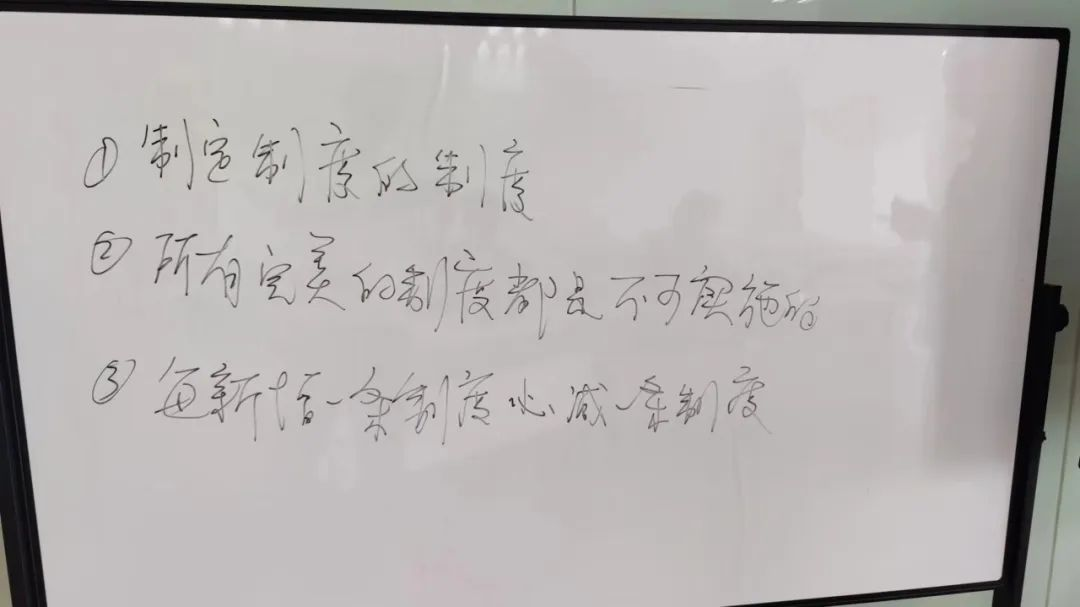 ① 制定制度的制度
② 所有完美的制度都是不可实施的
③ 每新增一条制度必减一条制度